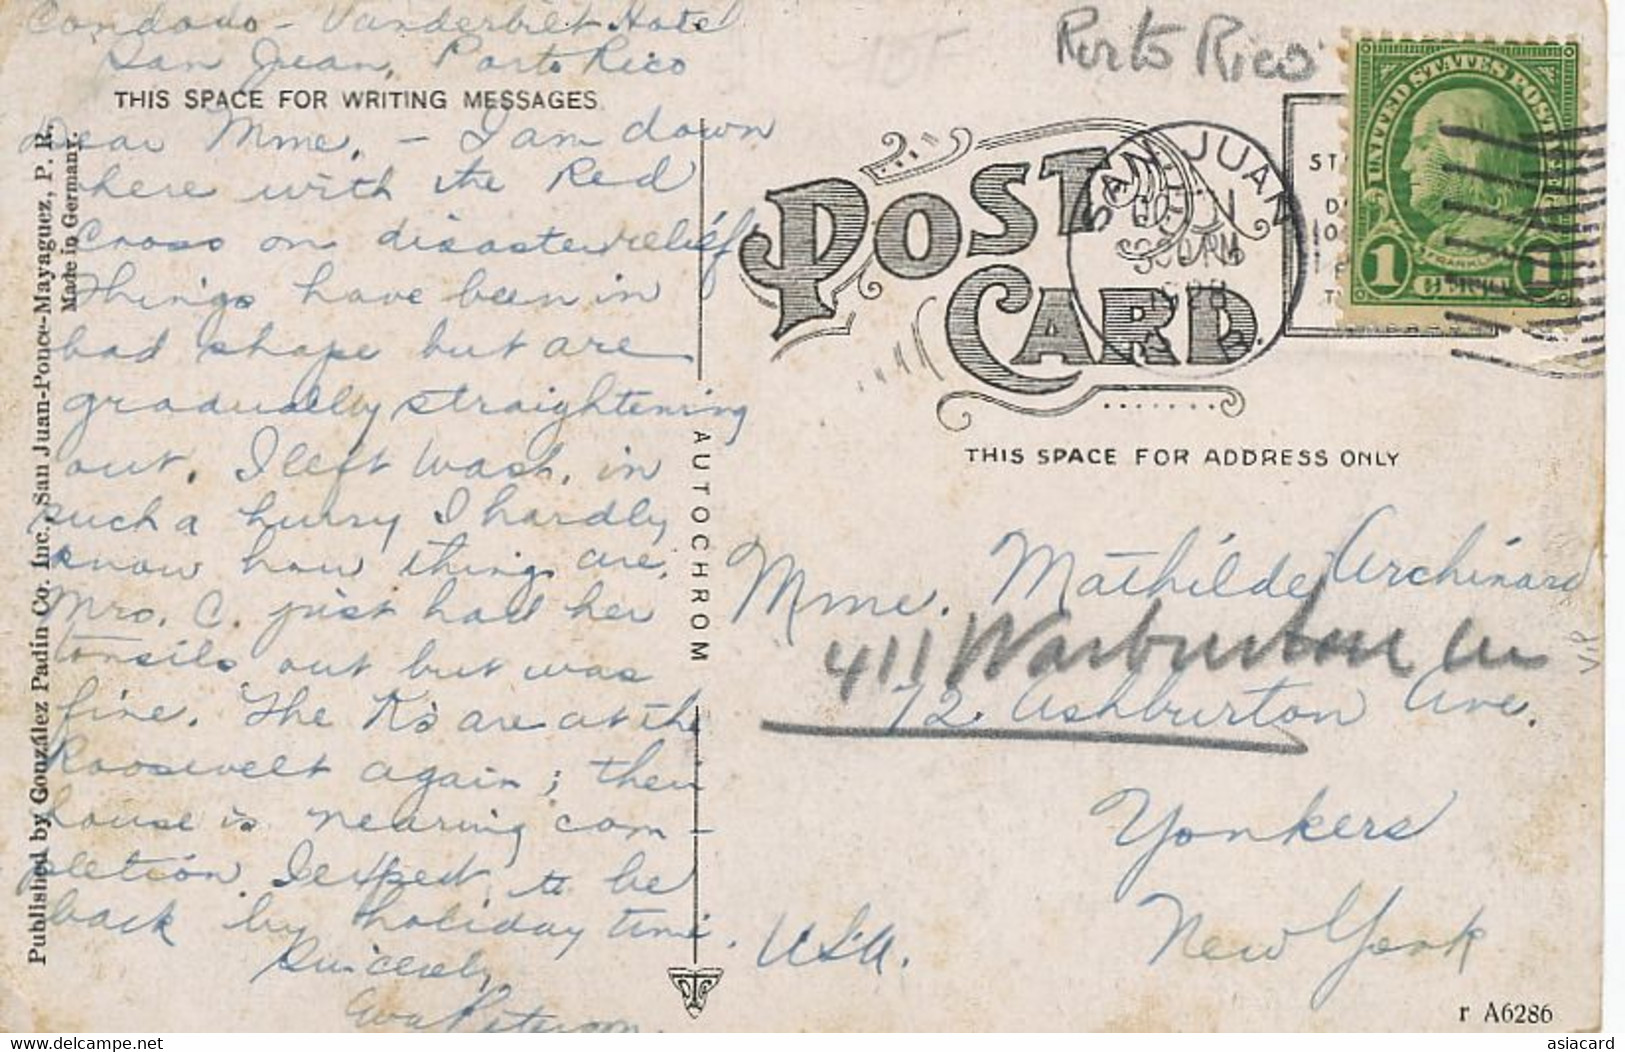 Condado - Vanderbilt Hotel
San Juan, Porto Rico
THIS SPACE FOR WRITING MESSAGES
Dear Mme, - I am down
here with the Red
Cross on disaster relief
Things have been in
bad shape but are
gradually straightening
out. I left Wash. in
such a hurry I hardly
know how things are.
Mrs. C. just had her
tonsils out but was
fine. The K's are at the
Roosevelt again; their
house is nearing com-
pletion. I expect to be
back by holiday time.
Sincerely,
Peterson.
Published by González Padin Co. Inc., San Juan-Ponce-Mayaguez, P. R.
Made in Germany.
AUTOCHROM
Porto Rico
POST CARD
SAN JUAN
P. R.
UNITED STATES POSTAGE
FRANKLIN
1 CENT 1
THIS SPACE FOR ADDRESS ONLY
Mme. Mathilde Archinard
411 Warburton Av
72 Ashburton Ave.
Yonkers
New York
U.S.A.
r A6286
asiacard